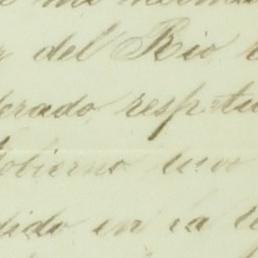 del Rio
erado respetu
obierno tuvo
dido en la